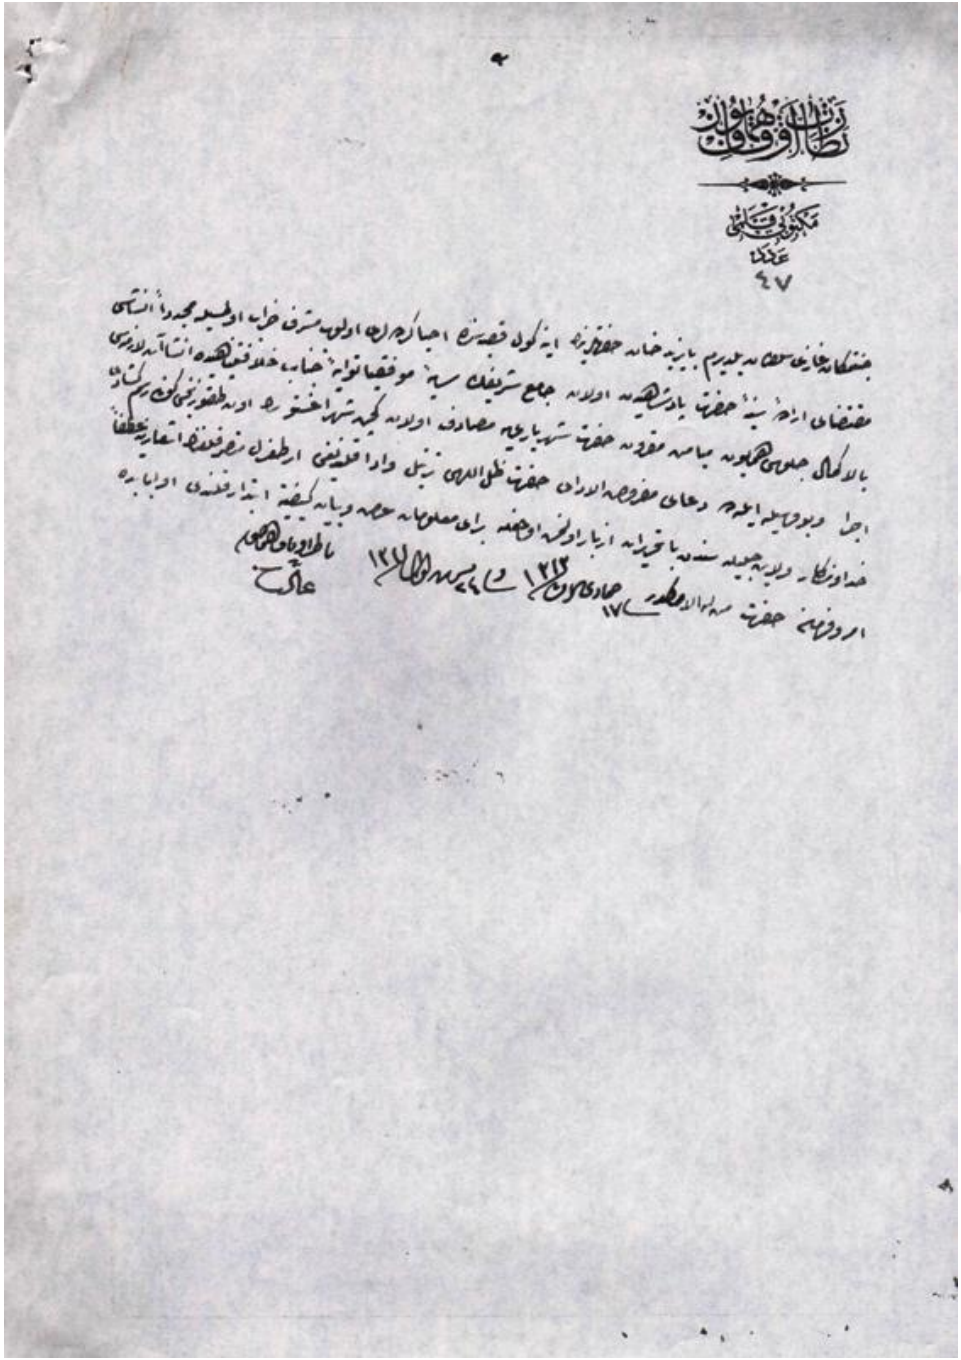 نظارت اوقاف همايون
مكتوبی قلمی
عدد
٤٧
جنتمكان غازی سلطان ييلديرم بايزيد خان حضرتلرينك اينه كول قصبه سنده احيا كرده لری اولوب مشرف خراب اولمسيله مجدداً انشاسی
مقتضای اراده سنيه حضرت پادشاهيدن اولان جامع شريفك سايه موفقيتوايه جناب خلافتپناهيده انشاآت لازمه سی
بالاكمال جلوس همايون ميامن مقرون حضرت شهرياری يه مصادف اولان كچن شهر اغستوسك اون طقوزنجی كونی رسم كشادی
اجرا وبو وسيله ايله ده دعای مفروض الادای حضرت ظل اللهی ترتيل وادا قلنديغی ارطغرل متصرفلغنك اشعارينه عطفاً
خداوندكار ولايت جليله سندن با تحريرات ازبار اولنمش اولمغله برای معلومات عرض وبيان كيفيته ابتدار قلندی اولبابده
امر وفرمان حضرت من له الامركدر ١٧ جمادی الاولی سنه ١٣١٣ و ٢٤ تشرين اول سنه ١٣١١
ناظر اوقاف همايون
غالب